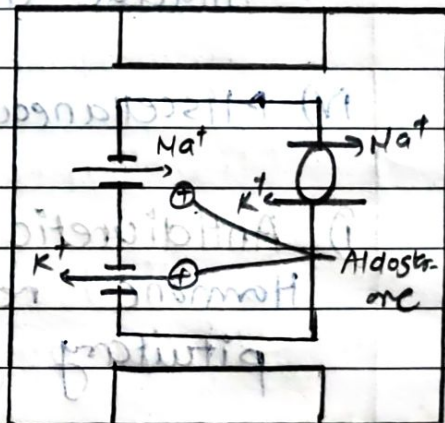 Na⁺
Na⁺
⊕
K⁺
K⁺
⊕
Aldostr-
one